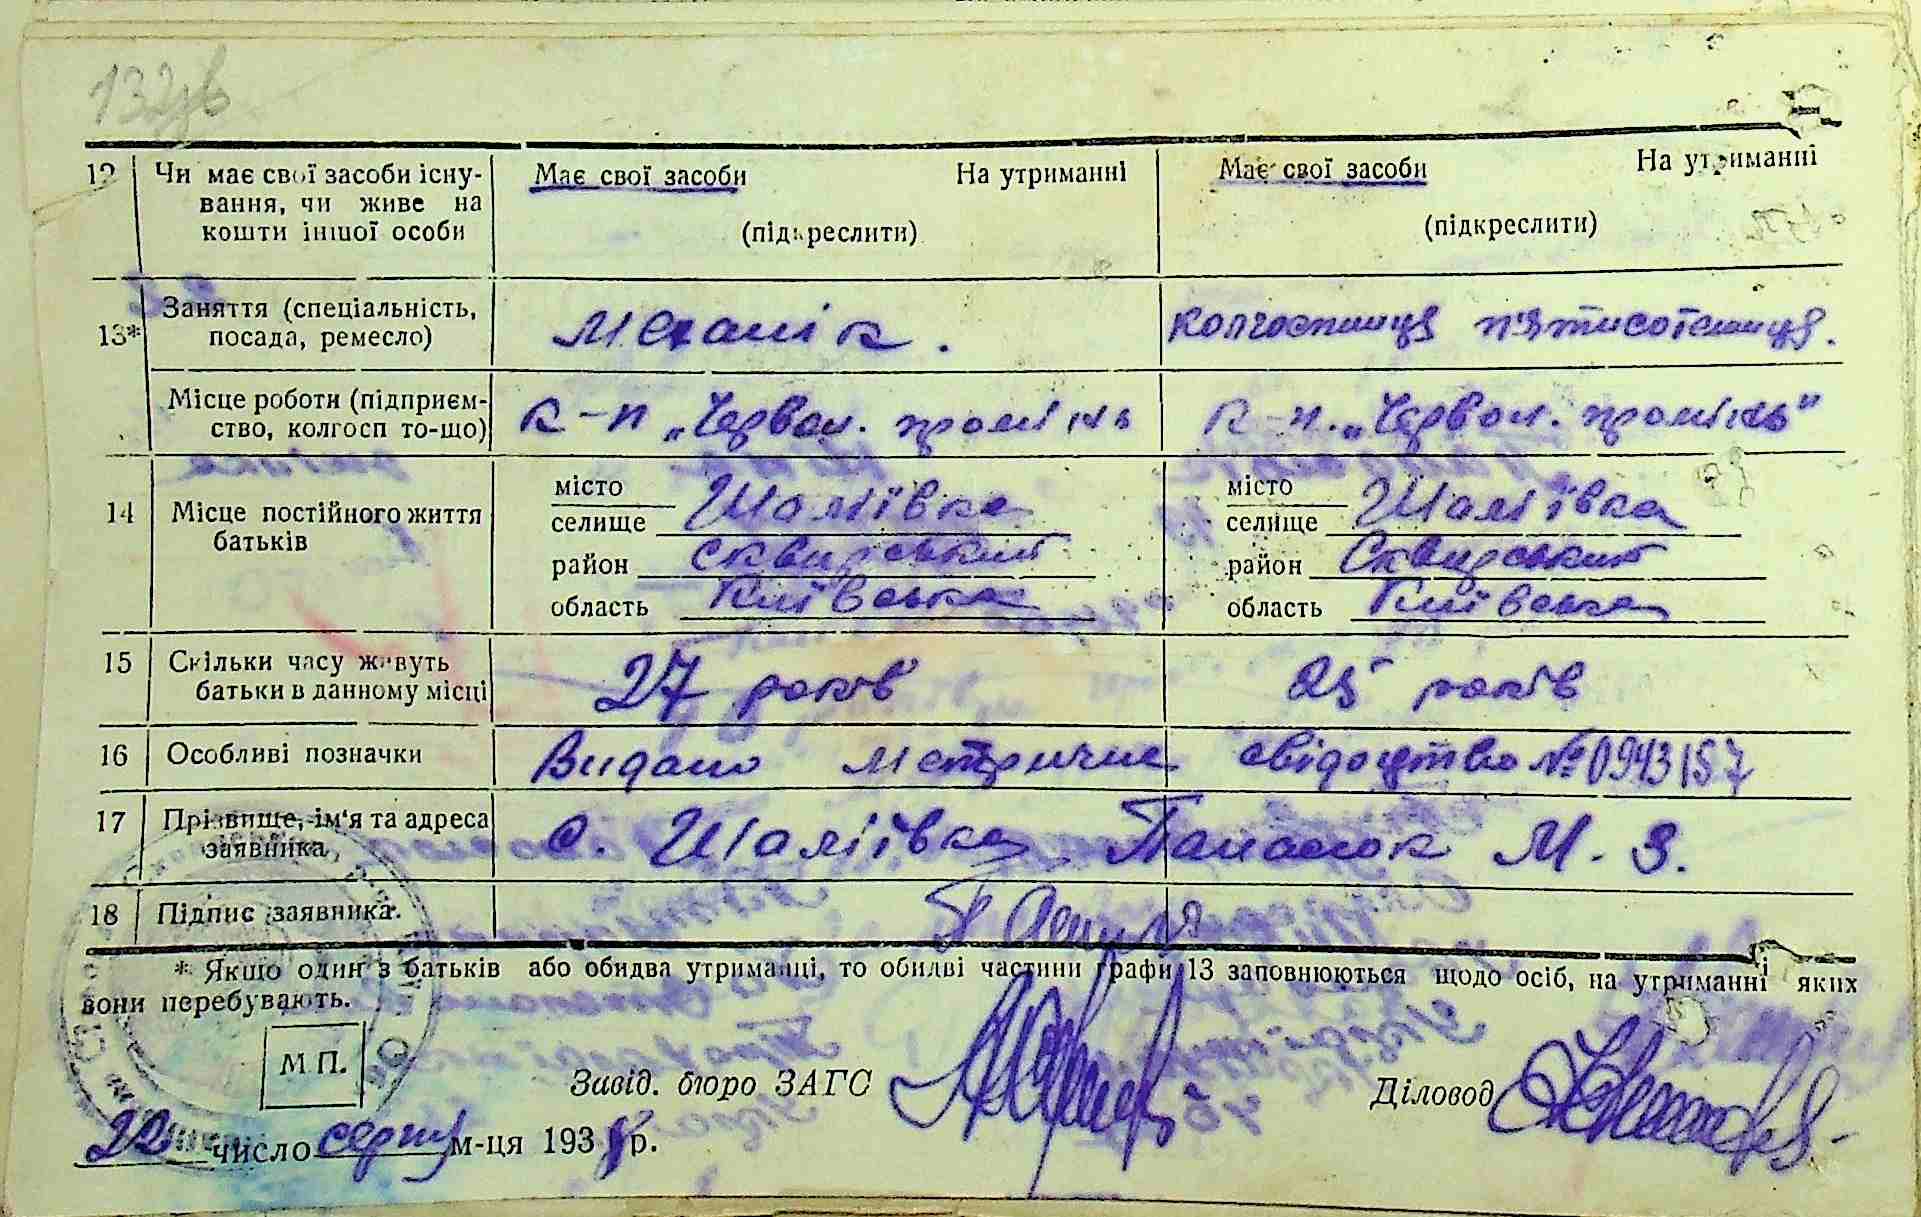 132зв
12 Чи має свої засоби існу- Має свої засоби На утриманні Має свої засоби На утриманні
вання, чи живе на (підкреслити) (підкреслити)
кошти іншої особи
13* Заняття (спеціальність, Механік. колгоспниця п'ятисотениця.
посада, ремесло)
Місце роботи (підприєм- к-п „Червон. промінь к-п. „Червон. промінь"
ство, колгосп то-що)
14 Місце постійного життя місто місто
батьків селище Шаліївка селище Шаліївка
район Сквирський район Сквирський
область Київська область Київська
15 Скільки часу живуть 27 років 25 років
батьки в данному місці
16 Особливі позначки Видано метричне свідоцтво № 0943157
17 Прізвище, ім'я та адреса с. Шаліївка Панасюк М. З.
заявника
18 Підпис заявника.
* Якщо один з батьків або обидва утриманці, то обидві частини графи 13 заповнюються щодо осіб, на утриманні яких
вони перебувають.
М П.
Завід. бюро ЗАГС Діловод
22 число серпня м-ця 1938 р.